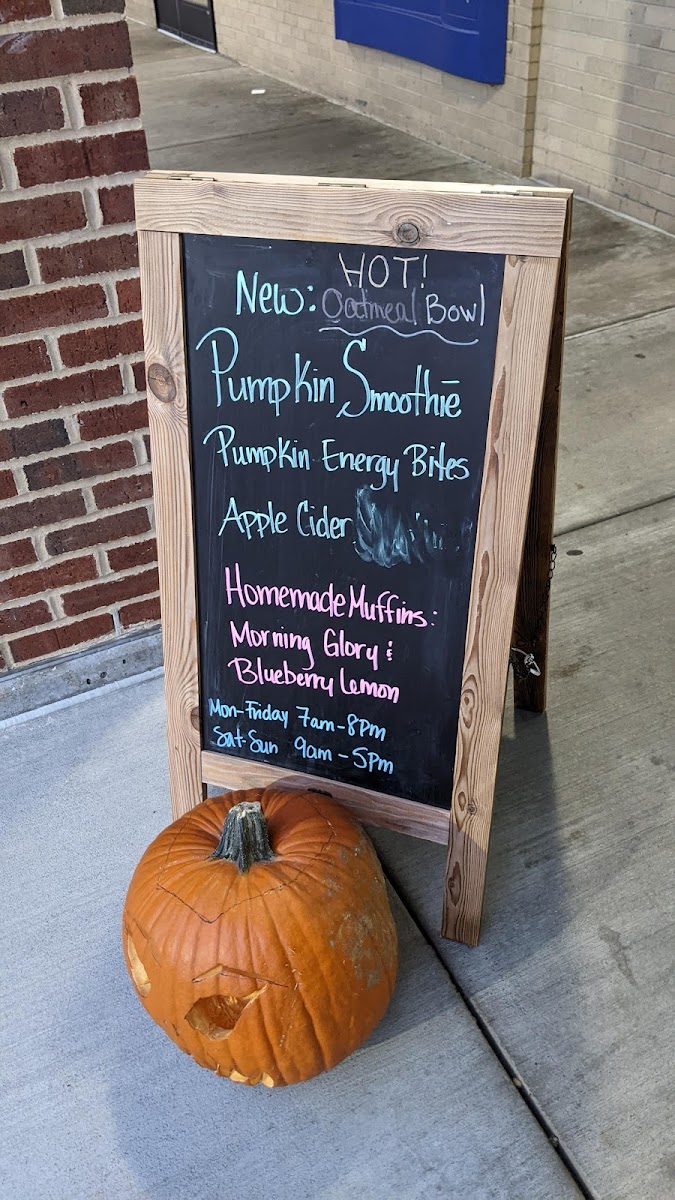 HOT!
New: Oatmeal Bowl
Pumpkin Smoothie
Pumpkin Energy Bites
Apple Cider
Homemade Muffins:
Morning Glory &
Blueberry Lemon
Mon-Friday 7am-8pm
Sat-Sun 9am-5pm